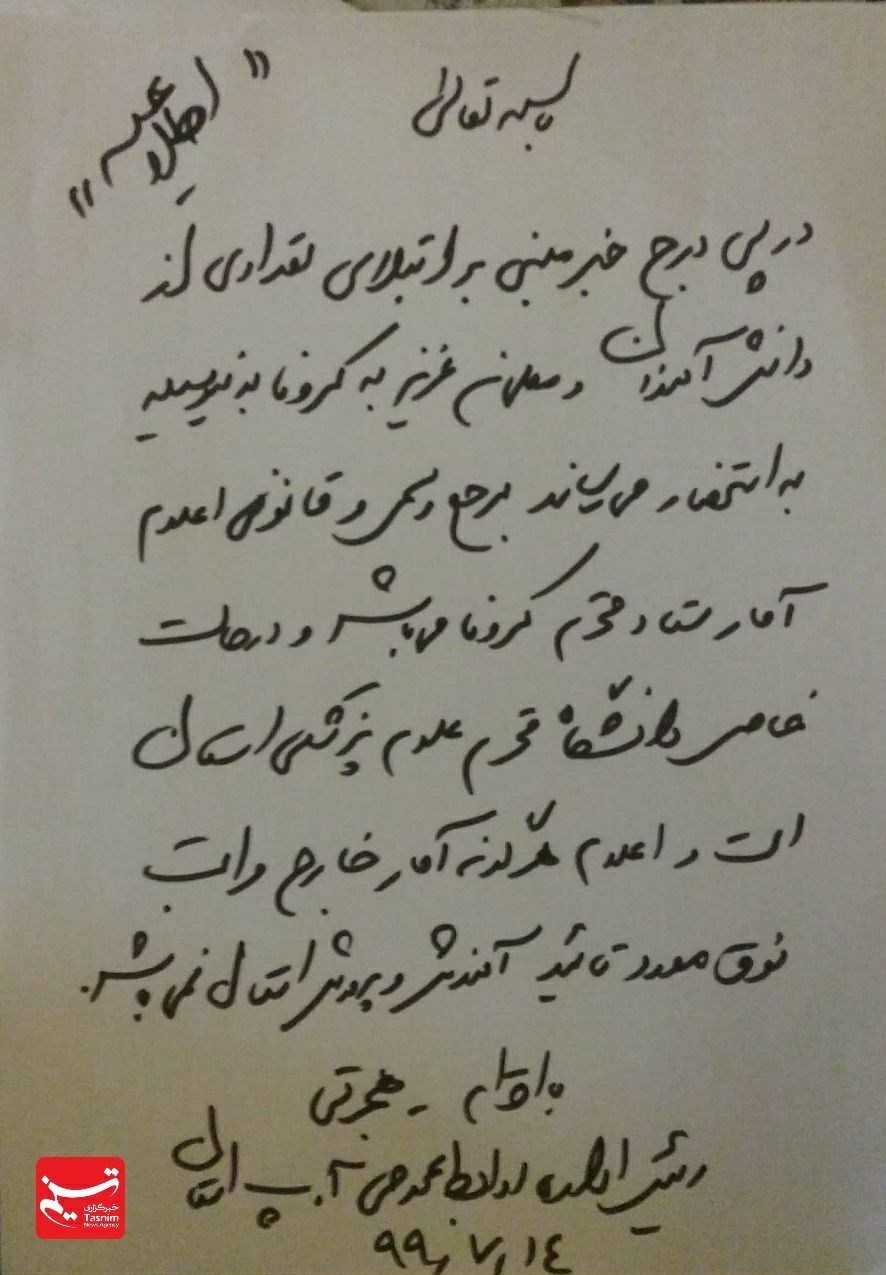 بسمه تعالی
" اطلاعیه "
در پی درج خبر مبنی بر ابتلای تعدادی از
دانش آموزان و معلمان عزیز به کرونا بدینوسیله
به استحضار می‌رساند مرجع رسمی و قانونی اعلام
آمار ستاد محترم کرونا می‌باشد و در حالت
خاص دانشگاه محترم علوم پزشکی استان
است و اعلام هرگونه آمار خارج
فوق مورد تائید آموزش و پرورش استان نمی باشد.
با احترام - هجرتی
رئیس اداره روابط عمومی آ.پ استان
۹۹،۷،۱٤
تسنیم
خبرگزاری
Tasnim
News Agency